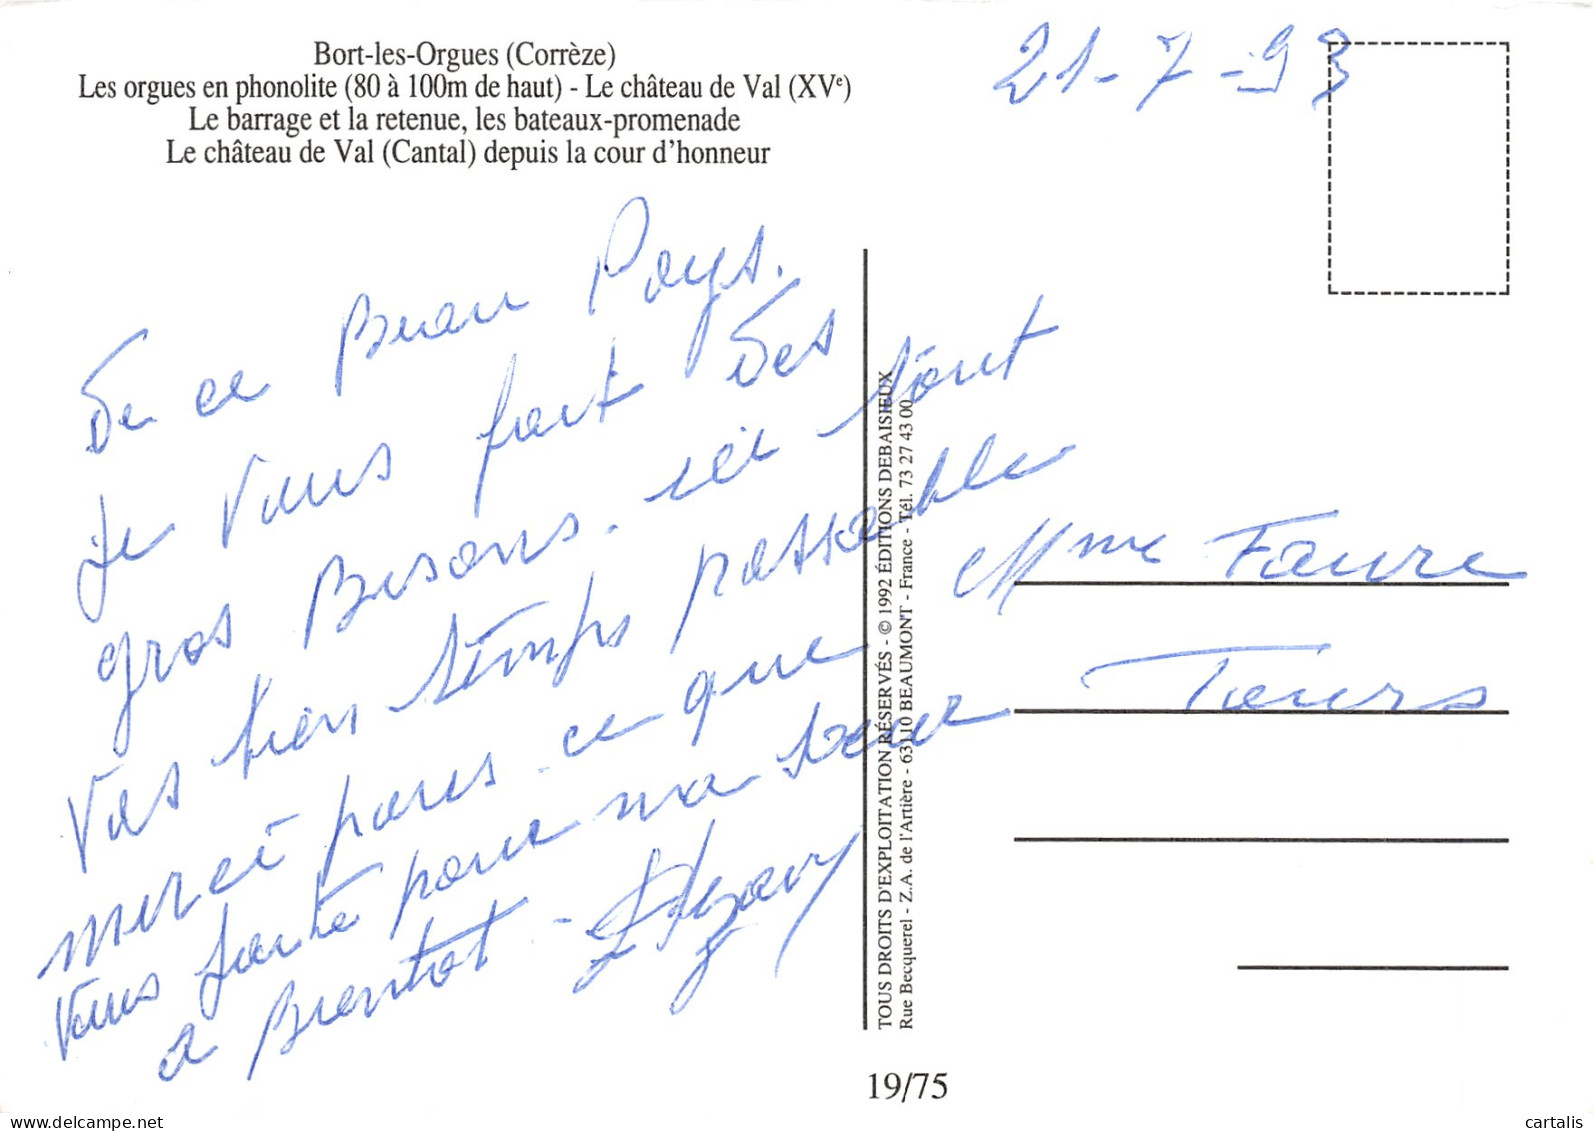 Bort-les-Orgues (Corrèze)
Les orgues en phonolite (80 à 100m de haut) - Le château de Val (XVᵉ)
Le barrage et la retenue, les bateaux-promenade
Le château de Val (Cantal) depuis la cour d'honneur
21-7-93
De ce Beau Pays.
Je vous fait des
gros Bisous. ici tout
vas bien temps passable
merci pour ce que
vous faite pour ma
a Bientot -
Mme Faure
Tours
TOUS DROITS D'EXPLOITATION RÉSERVÉS - © 1992 ÉDITIONS DEBAISIEUX
Rue Becquerel - Z.A. de l'Artière - 63110 BEAUMONT - France - Tél. 73 27 43 00
19/75
www.delcampe.net
cartalis